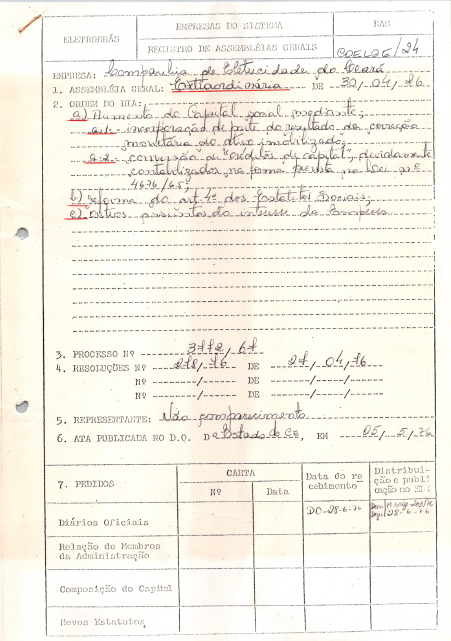 ELETROBRÁS
EMPRESAS DO SISTEMA
REGISTRO DE ASSEMBLÉIAS GERAIS
RAG
COELCE/24
EMPRESA: Companhia de Eletricidade do Ceará
1. ASSEMBLÉIA GERAL: Extraordinária DE 30/04/76
2. ORDEM DO DIA:
a) Aumento do Capital social mediante;
a.1- incorporação de parte do resultado da correção
monetária do ativo imobilizado;
a.2- conversão de "créditos de capital", devidamente
contabilizados na forma prevista na Lei nº
4676/65;
b) reforma do art. 4º dos Estatutos Sociais;
c) Outros assuntos do interesse da Empresa
3. PROCESSO Nº 3772/67
4. RESOLUÇÕES Nº 278/76 DE 27/04/76
Nº ------/------ DE ------/------/------
Nº ------/------ DE ------/------/------
5. REPRESENTANTE: Não comparecimento
6. ATA PUBLICADA NO D.O. De Estado do CE, EM 05/5/76
7. PEDIDOS
CARTA
Nº
Data
Data do re
cebimento
Distribui-
ção e publi
cação no
Diários Oficiais
DO-28-6-76
28-6-76
Relação de Membros
da Administração
Composição do Capital
Novos Estatutos